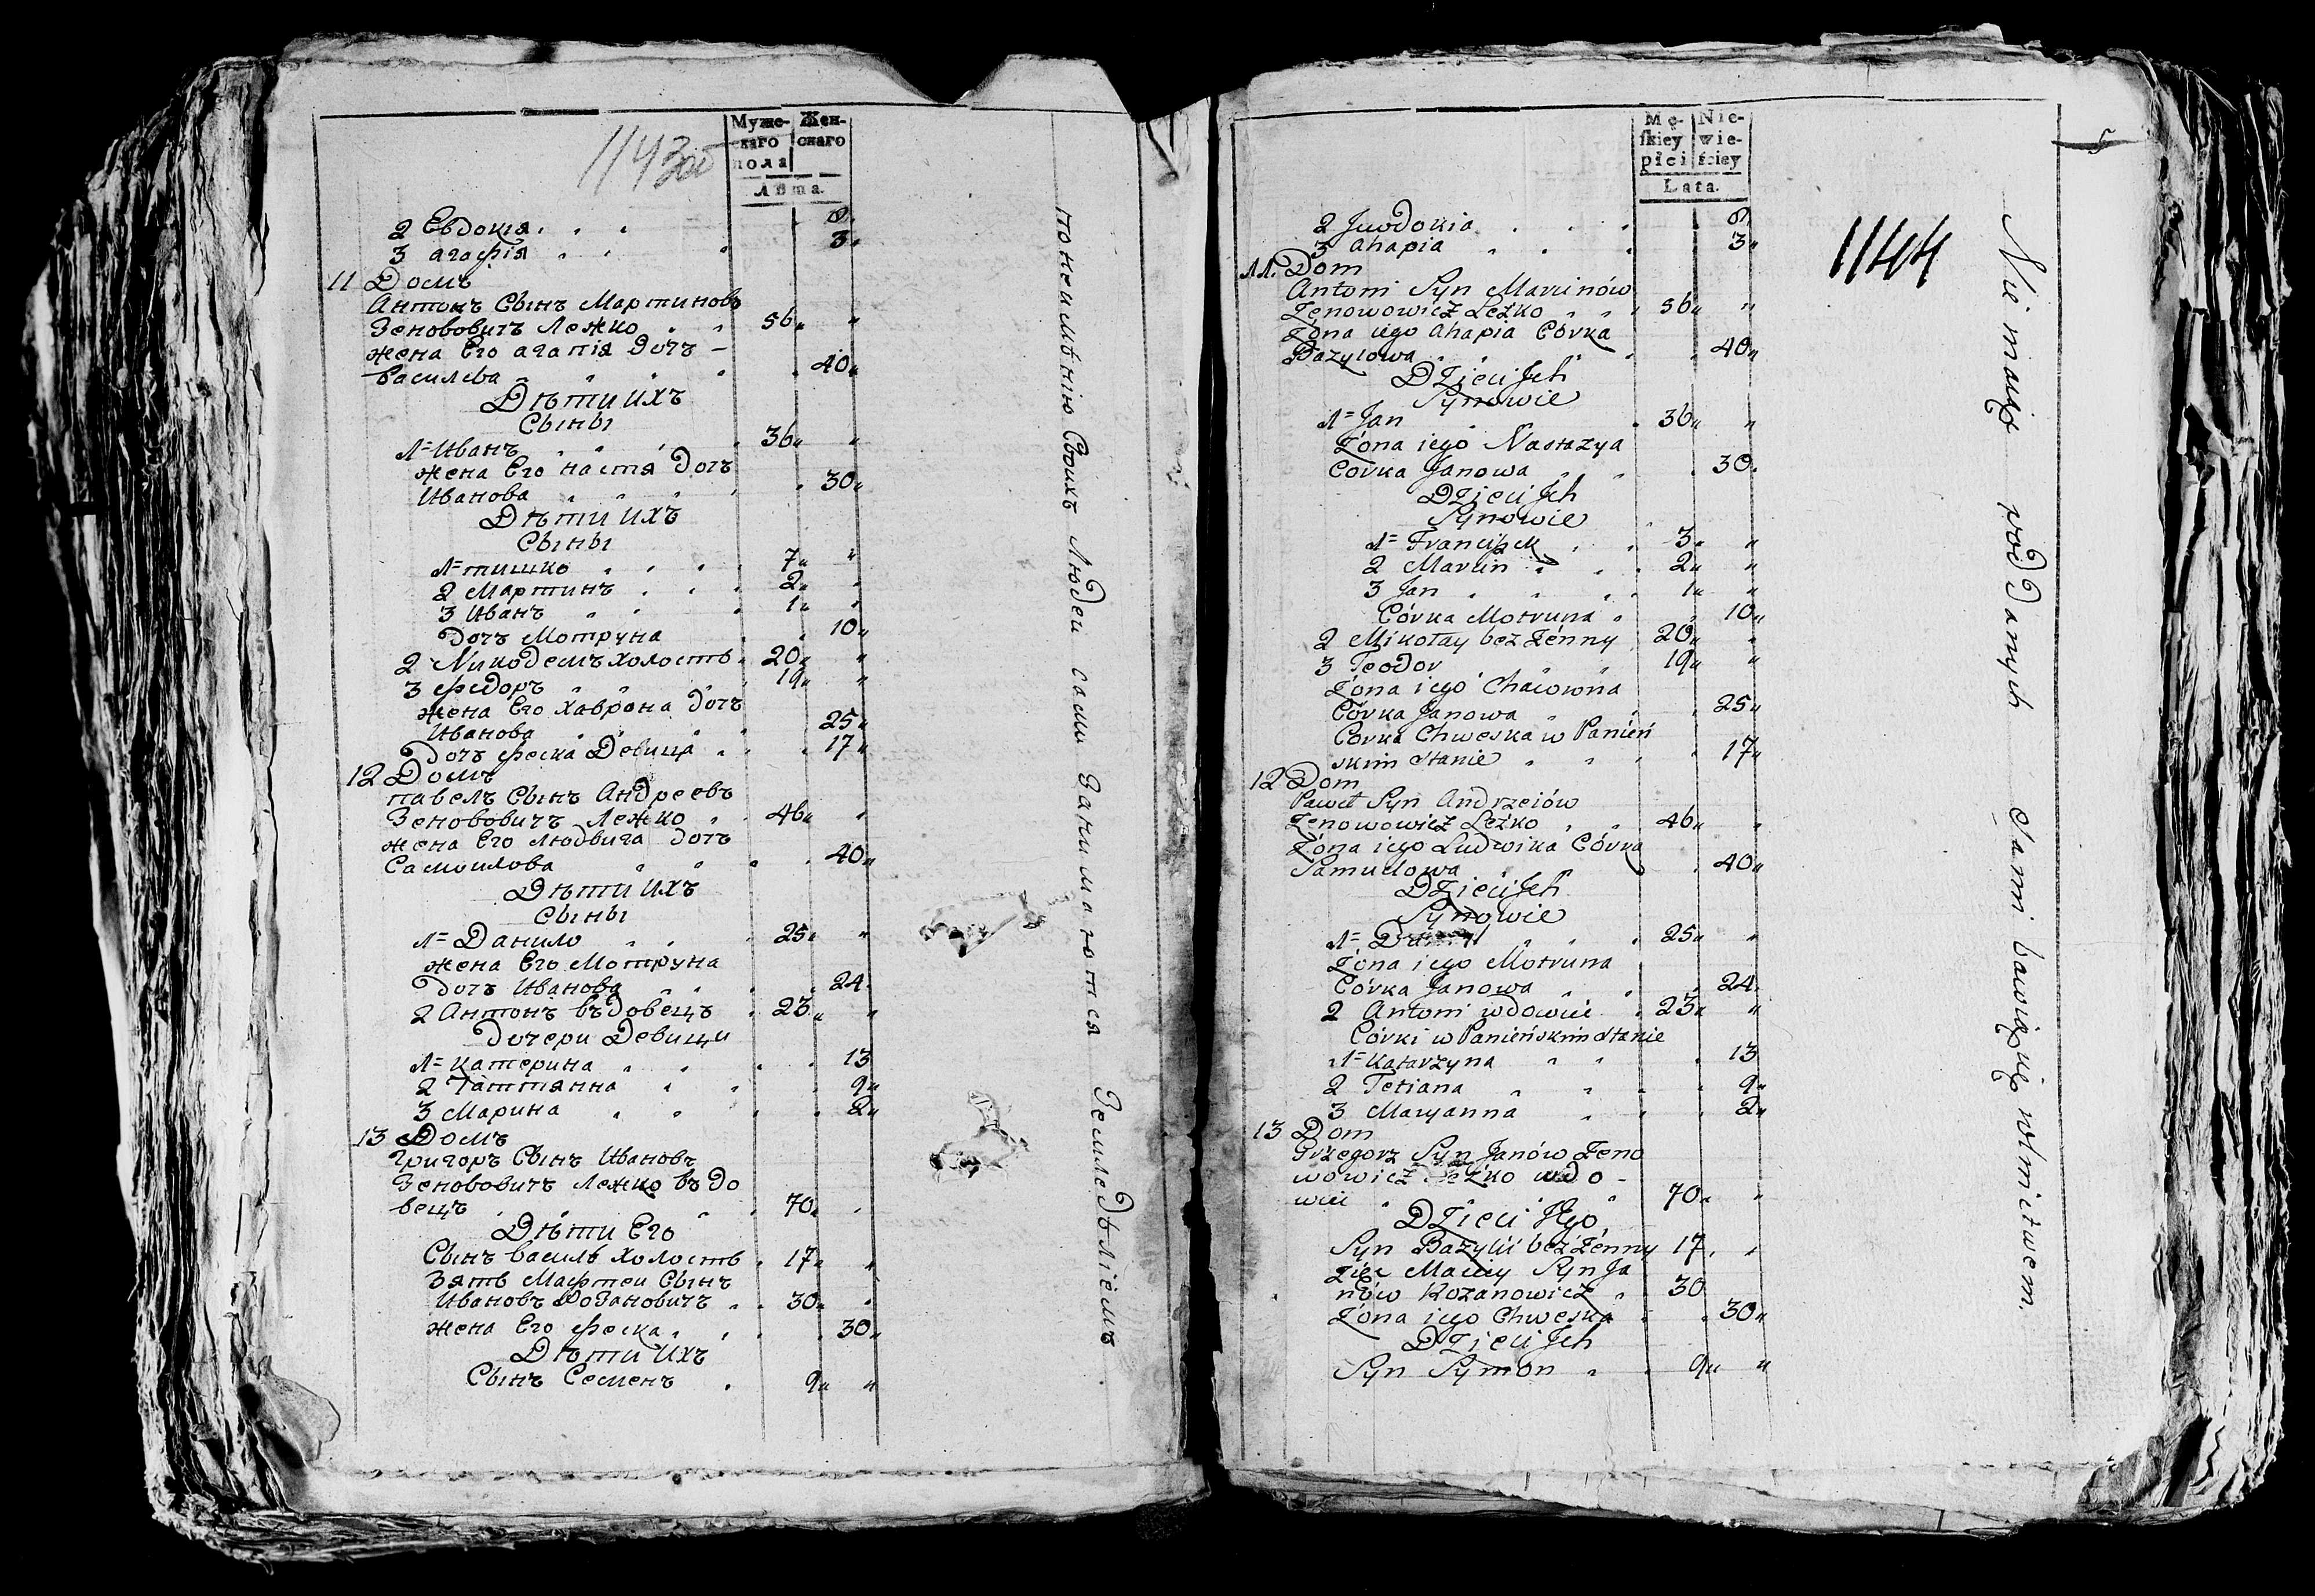 1143об
Муже-
скаго
пола
Жен-
скаго
Лѣта.
2 Евдокія 8
3 агафія 3
11 Домъ
Антонъ Сынъ Мартиновъ
Зенововичъ Лежко 56
жена Его агапія дочъ
василева 40
Дѣти ихъ
Сыны
1 Иванъ 36
жена Его настя дочъ
Иванова 30
Дѣти ихъ
Сыны
1 тишко 7
2 Мартинъ 2
3 Иванъ 1
дочъ Мотруна 10
2 Никодемъ холостъ 20
3 федоръ 19
жена Его хаврона дочъ
Иванова 25
дочъ феска Девица 17
12 Домъ
павелъ Сынъ Андреевъ
Зенововичъ Лежко 46
жена Его людвига дочъ
Самоилова 40
Дѣти ихъ
Сыны
1 Данило 25
жена Его Мотруна
дочъ Иванова 24
2 Антонъ въдовецъ 23
дочери Девицы
1 катерина 13
2 Таттянна 9
3 Марина 2
13 Домъ
григоръ Сынъ Ивановъ
Зенововичъ Лежко въдо
вецъ 70
Дѣти Его
Сынъ василь холостъ 17
Зять Мафтеи Сынъ
Ивановъ Козановичъ 30
жена Его феска 30
Дѣти ихъ
Сынъ Семенъ 9
понеимѣнію Своихъ Людей сами Занимаются Земледѣліемъ
Mę-
skiey
płci
Nie-
wie-
ściey
Lata.
5
1144
2 Juwdokia 8
3 Ahapia 3
11. Dom
Antoni Syn Marcinów
Zenowowicz Leżko 56
Żona iego Ahapia Córka
Bazylowa 40
Dzieci Jch
Synowie
1 Jan 36
Żona iego Nastazya
Corka Janowa 30
Dzieci Jch
Synowie
1 Franciszek 3
2 Marcin 2
3 Jan 1
Córka Motruna 10
2 Mikołay bez Żenny 20
3 Teodor 19
Żona iego Chacowna
Córka Janowa 25
Corka Chweska w Panień
skim stanie 17
12 Dom
Paweł Syn Andrzeiów
Zenowowicz Leżko 46
Żona iego Ludwika Córka
Samuelowa 40
Dzieci Jch
Synowie
1 25
Żona iego Motruna
Córka Janowa 24
2 Antoni wdowiec 23
Córki w Panieńskim stanie
1 Katarzyna 13
2 Tetiana 9
3 Maryanna 2
13 Dom
Grzegorz Syn Janów Zeno
wowicz Leżko wdo-
wiec 70
Dzieci Jego
Syn Bazyli bez Żenny 17
Zięc Maciey Syn Ja
nów Kozanowicz 30
Żona iego Chweska 30
Dzieci Jch
Syn Symon 9
Nie maiąc poddanych sami bawią się rolnictwem.